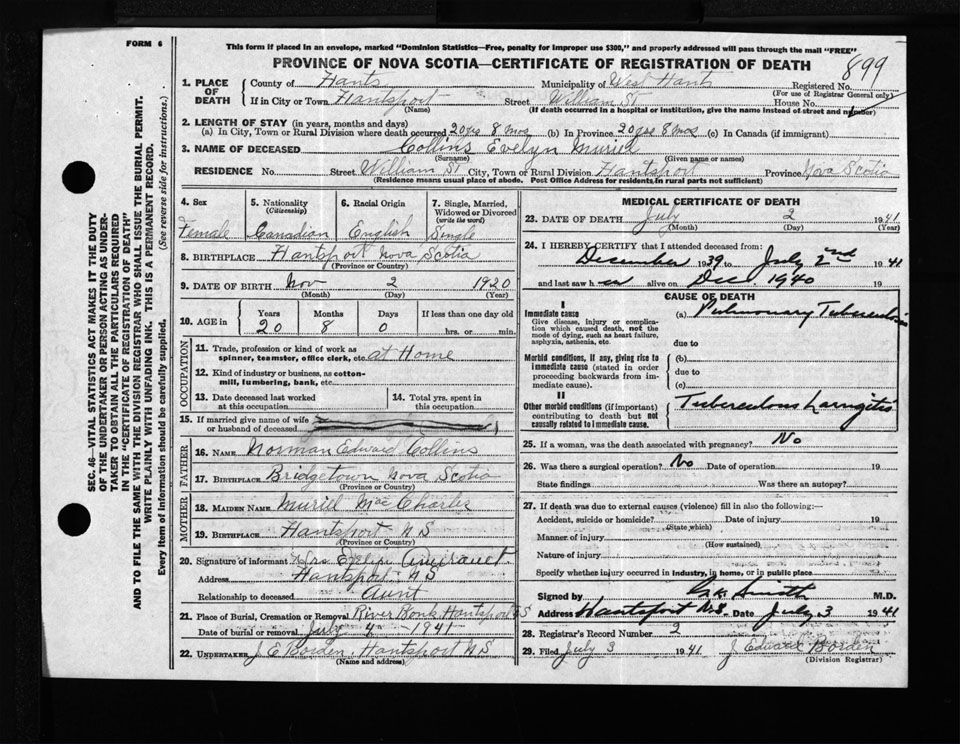 FORM 6
This form if placed in an envelope, marked "Dominion Statistics—Free, penalty for improper use $300," and properly addressed will pass through the mail "FREE"
PROVINCE OF NOVA SCOTIA—CERTIFICATE OF REGISTRATION OF DEATH
899
SEC. 46—VITAL STATISTICS ACT MAKES IT THE DUTY
OF THE UNDERTAKER OR PERSON ACTING AS UNDER-
TAKER TO OBTAIN ALL THE PARTICULARS REQUIRED
IN THE "CERTIFICATE OF REGISTRATION OF DEATH"
AND TO FILE THE SAME WITH THE DIVISION REGISTRAR WHO SHALL ISSUE THE BURIAL PERMIT.
WRITE PLAINLY WITH UNFADING INK. THIS IS A PERMANENT RECORD.
Every item of Information should be carefully supplied. (See reverse side for instructions.)
1. PLACE OF DEATH
County of Hants Municipality of West Hants Registered No.
(For use of Registrar General only)
If in City or Town Hantsport Street William St House No.
(Name) (If death occurred in a hospital or institution, give the name instead of street and number)
2. LENGTH OF STAY (in years, months and days)
(a) In City, Town or Rural Division where death occurred 20 yrs 8 mos (b) In Province 20 yrs 8 mos (c) In Canada (if immigrant)
3. NAME OF DECEASED Collins Evelyn Muriel
(Surname) (Given name or names)
RESIDENCE No. Street William St City, Town or Rural Division Hantsport Province Nova Scotia
(Residence means usual place of abode. Post Office Address for residents in rural parts not sufficient)
4. Sex
Female
5. Nationality
(Citizenship)
Canadian
6. Racial Origin
English
7. Single, Married,
Widowed or Divorced
(write the word)
Single
8. BIRTHPLACE Hantsport Nova Scotia
(Province or Country)
9. DATE OF BIRTH Nov 2 1920
(Month) (Day) (Year)
10. AGE in Years Months Days If less than one day old
20 8 0 hrs. or min.
OCCUPATION
11. Trade, profession or kind of work as
spinner, teamster, office clerk, etc. at Home
12. Kind of industry or business, as cotton-
mill, lumbering, bank, etc.
13. Date deceased last worked
at this occupation
14. Total yrs. spent in
this occupation
15. If married give name of wife
or husband of deceased
FATHER
16. NAME Norman Edward Collins
17. BIRTHPLACE Bridgetown Nova Scotia
MOTHER
18. MAIDEN NAME Muriel MacCharles
19. BIRTHPLACE Hantsport N S
(Province or Country)
20. Signature of informant Mrs Evelyn
Address Hantsport N S
Relationship to deceased Aunt
21. Place of Burial, Cremation or Removal River Bank Hantsport NS
Date of burial or removal July 4 1941
22. UNDERTAKER J E Borden, Hantsport N S
(Name and address)
MEDICAL CERTIFICATE OF DEATH
23. DATE OF DEATH July 2 1941
(Month) (Day) (Year)
24. I HEREBY CERTIFY that I attended deceased from:
December 1939 to July 2nd 1941
and last saw h er alive on Dec. 1940 19
CAUSE OF DEATH
I
Immediate cause
Give disease, injury or complica-
tion which caused death, not the
mode of dying, such as heart failure,
asphyxia, asthenia, etc.
(a) Pulmonary Tuberculosis
due to
Morbid conditions, if any, giving rise to
immediate cause (stated in order
proceeding backwards from im-
mediate cause).
(b)
due to
(c)
II
Other morbid conditions (if important)
contributing to death but not
causally related to immediate cause.
Tuberculous Laryngitis
25. If a woman, was the death associated with pregnancy? No
26. Was there a surgical operation? No Date of operation 19
State findings Was there an autopsy?
27. If death was due to external causes (violence) fill in also the following:—
Accident, suicide or homicide? Date of injury 19
(State which)
Manner of injury
(How sustained)
Nature of injury
Specify whether injury occurred in industry, in home, or in public place
Signed by Smith M.D.
Address Hantsport N.S. Date July 3 1941
28. Registrar's Record Number 2
29. Filed July 3 1941 J Edward Borden
(Division Registrar)